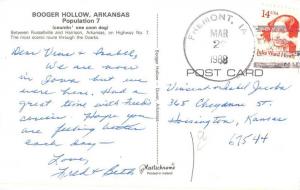 BOOGER HOLLOW, ARKANSAS
Population 7
(countin' one coon dog)
Between Russellville and Harrison, Arkansas, on Highway No. 7.
The most scenic route through the Ozarks.
Dear Vince & Isabell,
We are now
in Iowa but we
were here. Had a
great time with Fred's
cousin. Hope you
are feeling better
each day—
Love,
Fred & Beth
Booger Hollow — Dover, Arkansas
Plastichrome
FREMONT, IA
MAR
2
1988
POST CARD
14 USA
Julia Ward Howe
Vincent & Isabel Jacobs
365 Cheyenne St.
Hoisington, Kansas
67544